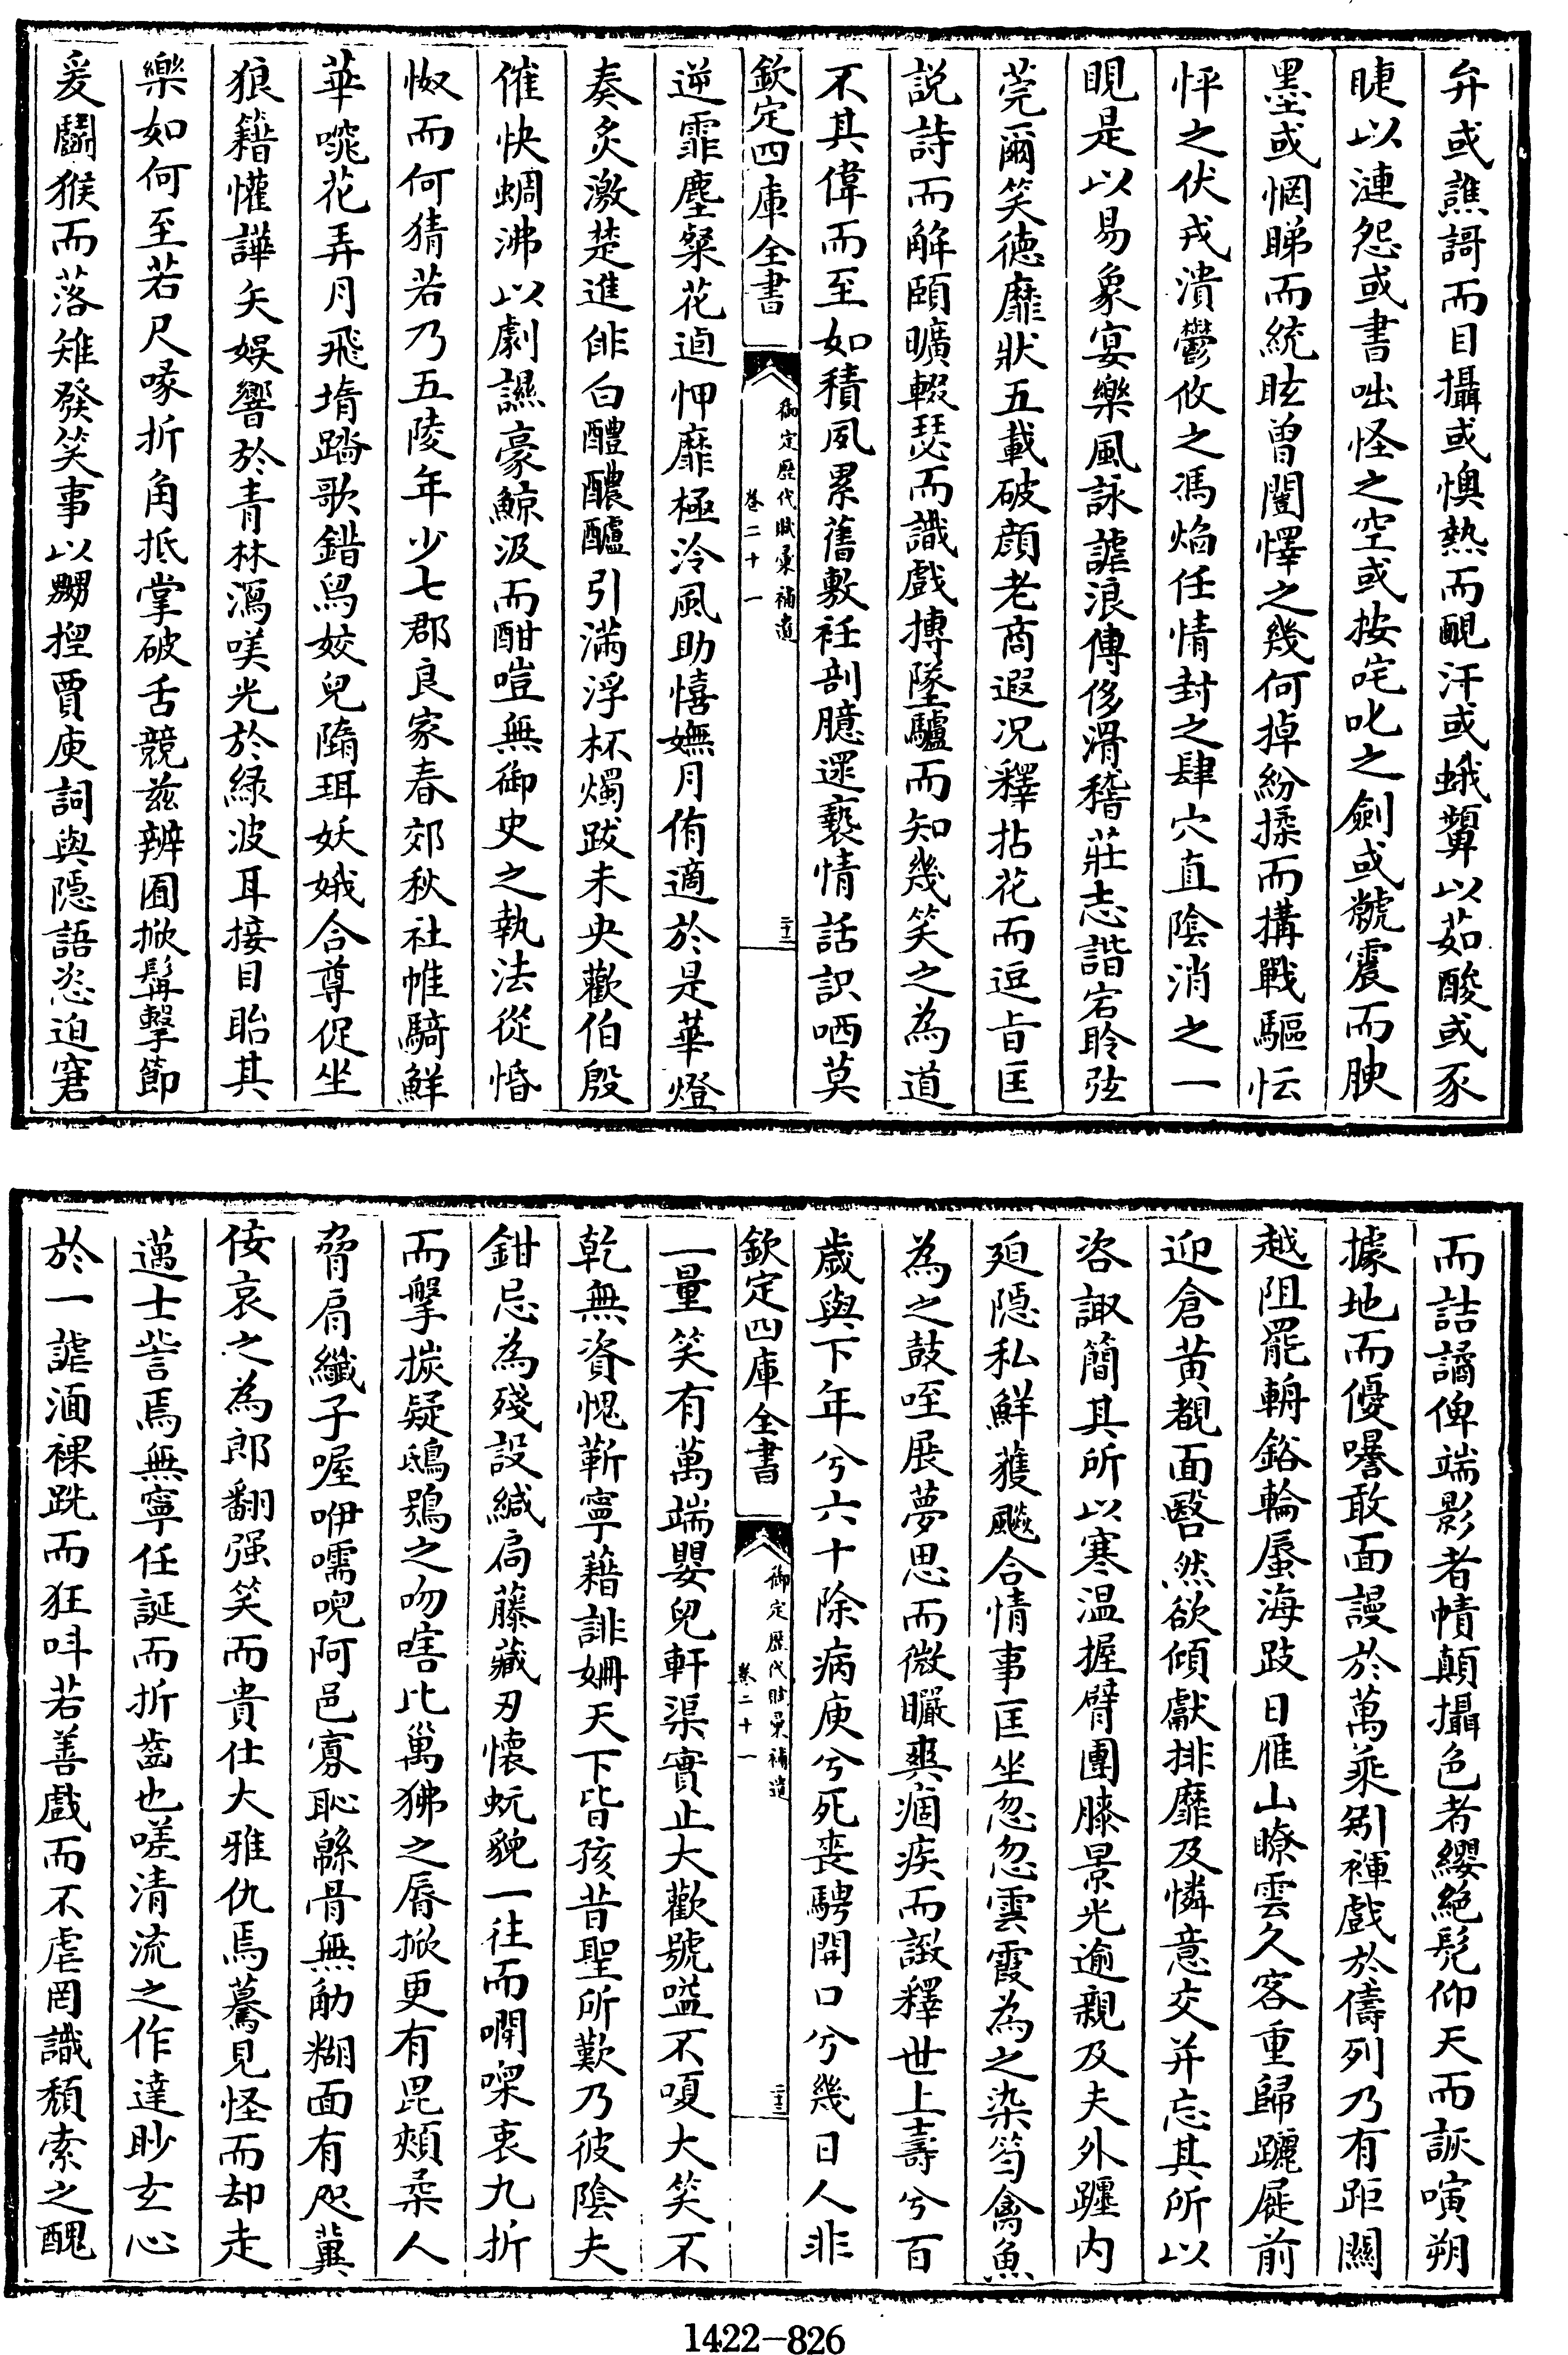 弁或譙謌而目攝或懊熱而靦汗或蛾顰以茹酸或豕
睫以漣怨或書咄怪之空或按咤叱之劍或虩震而腴
墨或惘睇而統眩曾闓懌之幾何掉紛揉而搆戰驅忶
怦之伏戎潰鬱攸之馮焰任情封之肆穴直陰消之一
睍是以易象宴樂風詠謔浪傳侈滑稽莊志諧宕聆弦
莞爾笑德靡狀五載破顔老商遐况釋拈花而逗㫖匡
説詩而解頤曠輟瑟而識戲摶墜驢而知幾笑之為道
不其偉而至如積夙累舊敷衽剖臆還褻情話訳哂莫
欽定四庫全書
御定歴代賦彙補遺
卷二十一
二十三
逆霏塵粲花逌呷靡極泠風助僖嫵月侑適於是華燈
奏炙激楚進俳白醴醲醽引滿浮杯燭跋未央歡伯殷
催快蜩沸以劇譅豪鯨汲而酣嘡無御史之執法從惛
怓而何猜若乃五陵年少七郡良家春郊秋社帷騎鮮
華唲花弄月飛堶踏歌錯舄姣兒隋珥妖娥合尊促坐
狼籍懽譁矢娛響於青林瀉唉光於緑波耳接目眙其
樂如何至若尺喙折角抵掌破舌競兹辨囿掀髯擊節
爰鬬猴而落雉發笑事以嬲揑賈庾詞與隱語恣迫窘
而詰譎俾端影者幘顛攝色者纓絶髠仰天而詼嗃朔
據地而優嚜敢面謾於萬乘剡褌戲於儔列乃有距闗
越阻罷輈鉻輪蜃海跂日雁山瞭雲久客重歸躧屣前
迎倉黄覩面翳然欲傾獻排靡及憐意交并忘其所以
咨諏簡其所以寒温握臂團膝景光逾親及夫外躔内
𢌞隱私鮮獲飈合情事匡坐忽忽雲霞為之染笉禽魚
為之鼓咥展夢思而微矙爽痼疾而譤釋世上壽兮百
歳與下年兮六十除病庾兮死喪騁開口兮幾日人非
欽定四庫全書
御定歴代賦彙補遺
卷二十一
二十三
一量笑有萬端嬰兒軒渠實止大歡號嗌不嗄大笑不
乾無資愧靳寧藉誹姍天下皆孩昔聖所歎乃彼陰夫
鉗忌為殘設緘扃藤藏刃懷蚖貌一往而嘲㗱衷九折
而撆掞疑鴟鴞之吻嗐比萬狒之脣掀更有毘頰柔人
脅肩纖子喔咿嚅唲阿邑寡恥緜骨無觔糊面有咫冀
佞哀之為郎翻强笑而貴仕大雅仇焉驀見怪而却走
邁士訾焉無寧任誕而折齒也嗟清流之作達眇玄心
於一謔湎裸跣而狂呌若善戲而不虐罔識頽索之醜
1422-826